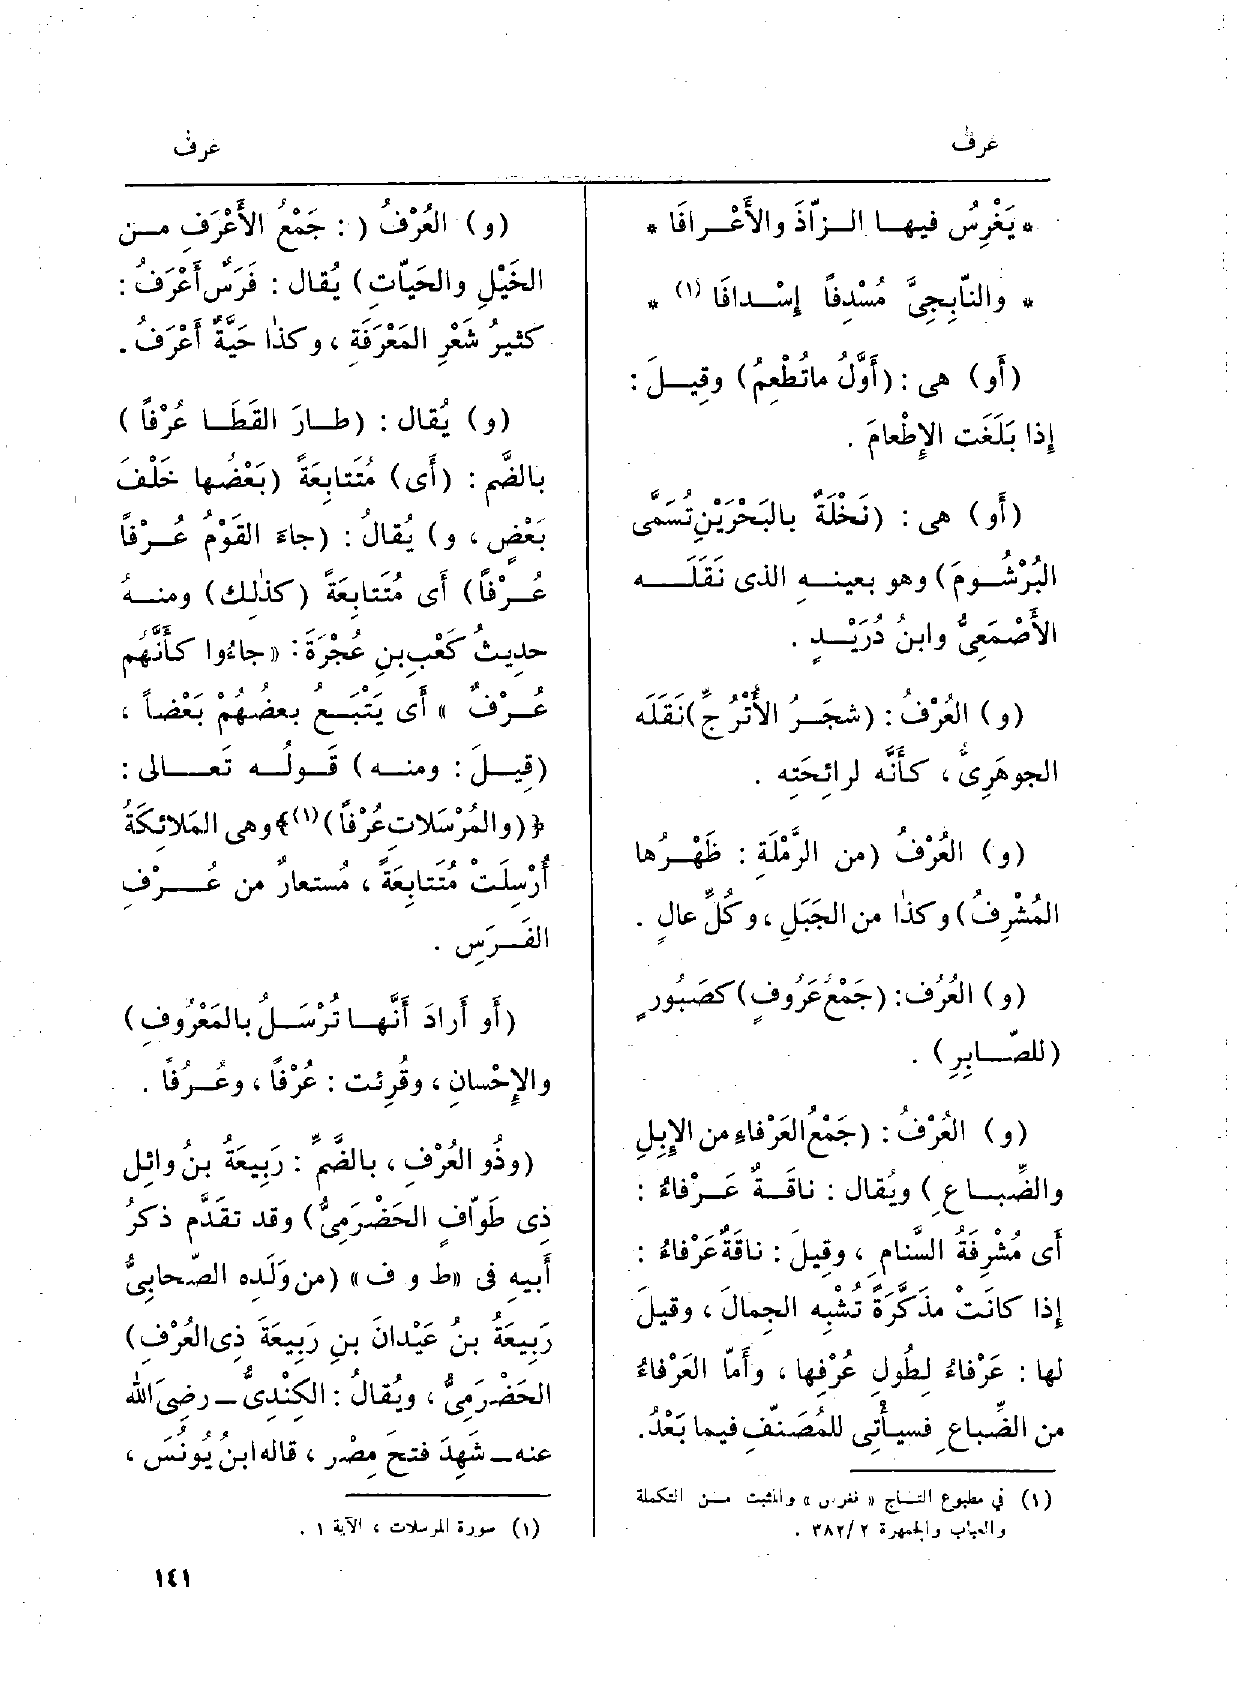 عرف
عرف
* يَغْرِسُ فيهـا الـزّاذَ والأَعْـرافَا *
* والنّابِجِىَّ مُسْدِفاً إِسْـدافَا (١) *
(أَو) هى : (أَوَّلُ ماتُطْعِمُ) وقِيـلَ :
إِذا بَلَغَت الإِطْعامَ .
(أَو) هى : (نَخْلَةٌ بالبَحْرَيْنِ تُسَمَّى
البُرْشُـومَ) وهو بعينـهِ الذى نَقَلَـــه
الأَصْمَعِىُّ وابنُ دُرَيْــدٍ .
(و) العُرْفُ : (شجَـرُ الأُتْرُجِّ) نَقَلَه
الجوهَرِىُّ ، كأَنَّه لرائحَتِه .
(و) العُرْفُ (من الرَّمْلَةِ : ظَهْـرُها
المُشْرِفُ) وكذٰا من الجَبَلِ ، وكُلِّ عالٍ .
(و) العُرُف : (جَمْعُ عَرُوفٍ) كصَبُورٍ
(للصّـابِرِ) .
(و) العُرْفُ : (جَمْعُ العَرْفاءِ من الإِبِلِ
والضِّبـاعِ) ويُقال : ناقَـةٌ عَـرْفاءُ :
أَى مُشْرِفَةُ السَّنامِ ، وقِيلَ : ناقَةٌ عَرْفاءُ :
إِذا كانَتْ مذَكَّرَةً تُشْبِه الجِمالَ ، وقيلَ
لها : عَرْفاءُ لِطُولِ عُرْفِها ، وأَمّا العَرْفاءُ
من الضِّباعِ فسيأْتِى للمُصَنِّفِ فيما بَعْدُ.
(١) في مطبوع التـاج « نفرس » والمثبت مـن التكملة
والعباب والجمهرة ٣٨٢/٢ .
(و) العُرْفُ ( : جَمْعُ الأَعْرَفِ مـن
الخَيْلِ والحَيّاتِ) يُقال : فَرَسٌ أَعْرَفُ :
كثيرُ شَعْرِ المَعْرَفَةِ ، وكذٰا حَيَّةٌ أَعْرَفُ .
(و) يُقال : (طـارَ القَطَـا عُرْفاً )
بالضَّم : (أَى) مُتَتابِعَةً (بَعْضُها خَلْفَ
بَعْضٍ ، و) يُقالُ : (جاءَ القَوْمُ عُـرْفاً
عُـرْفاً) أَى مُتَتابِعَةً (كذٰلِك) ومنـهُ
حديثُ كَعْبِ بنِ عُجْرَةَ : « جاءُوا كأَنَّهُم
عُـرْفٌ » أَى يَتْبَـع بعضُهُم بَعْضاً ،
(قِيـلَ : ومنـه) قَـولُـه تَعـالى :
﴿ (والمُرْسَلاتِ عُرْفاً) (١)﴾ وهى المَلائِكَةُ
أُرْسِلَتْ مُتَتابِعَةً ، مُستعارٌ من عُــرْفِ
الفَـرَسِ .
(أَو أَرادَ أَنَّهـا تُرْسَـلُ بالمَعْرُوفِ)
والإِحْسانِ ، وقُرِئت : عُرْفاً ، وعُـرُفًا .
(وذُو العُرْفِ ، بالضَّمِّ : رَبِيعَةُ بنُ وائِل
ذِى طَوّافٍ الحَضْرَمِىُّ) وقد تقَدَّم ذكرُ
أَبيه فى «ط و ف» (من وَلَدِه الصّحابِىُّ
رَبِيعَةُ بنُ عَيْدانَ بنِ رَبِيعَةَ ذِى العُرْفِ)
الحَضْرَمِىُّ ، ويُقالُ : الكِنْدِىُّ ــ رضِىَ اللهُ
عنه ــ شَهِدَ فتحَ مِصْر ، قاله ابنُ يُونُسَ ،
(١) سورة المرسلات ، الآية ١ .
١٤١